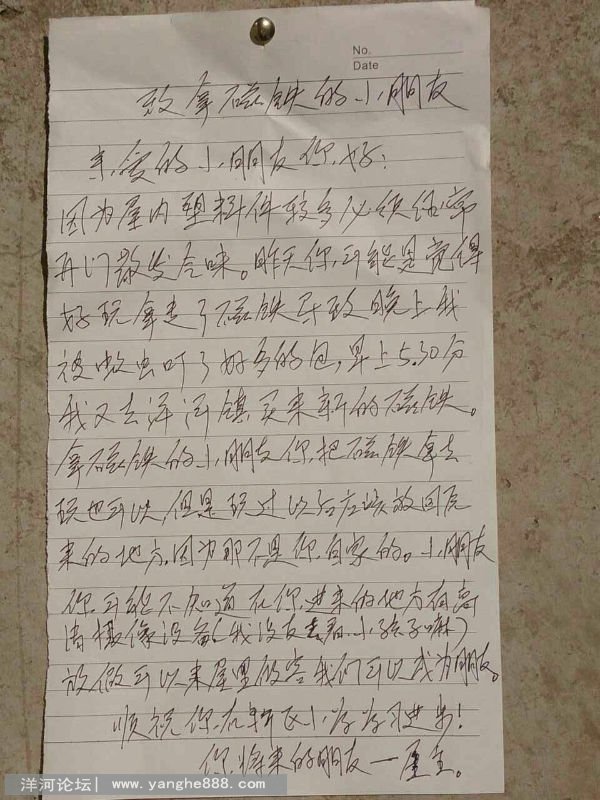 No.
Date
致拿磁铁的小朋友
亲爱的小朋友你好:
因为屋内塑料件较多必须经常
开门散发气味。昨天你可能是觉得
好玩拿走了磁铁导致晚上我
被蚊虫叮了好多的包,早上5.30分
我又去洋河镇买来新的磁铁。
拿磁铁的小朋友你把磁铁拿去
玩也可以,但是玩过以后应该放回原
来的地方,因为那不是你自家的。小朋友
你可能不知道在你进来的地方有高
清摄像设备(我没有去看,小孩子嘛)
放假可以来屋里做客我们可以成为朋友。
顺祝你在轩小学学习进步!
你将来的朋友一屋主。
洋河论坛| www.yanghe888.com